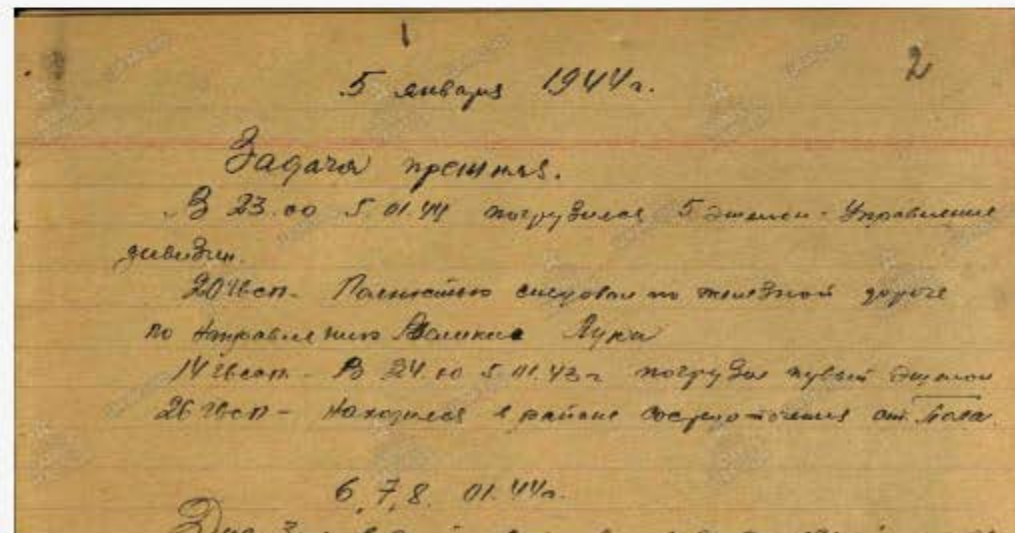 1
2
5 января 1944г.
Задача прежняя.
В 23.00 5.01.44 погрузился 5 эшелон - Управление
дивизии.
20 гвсп - Полностью следовал по железной дороге
по направлению Великие Луки
14 гвсп - В 24.00 5.01.43г погрузил эшелон
26 гвсп - Находился в районе сосредоточения ст. Пола
6, 7, 8. 01.44г.